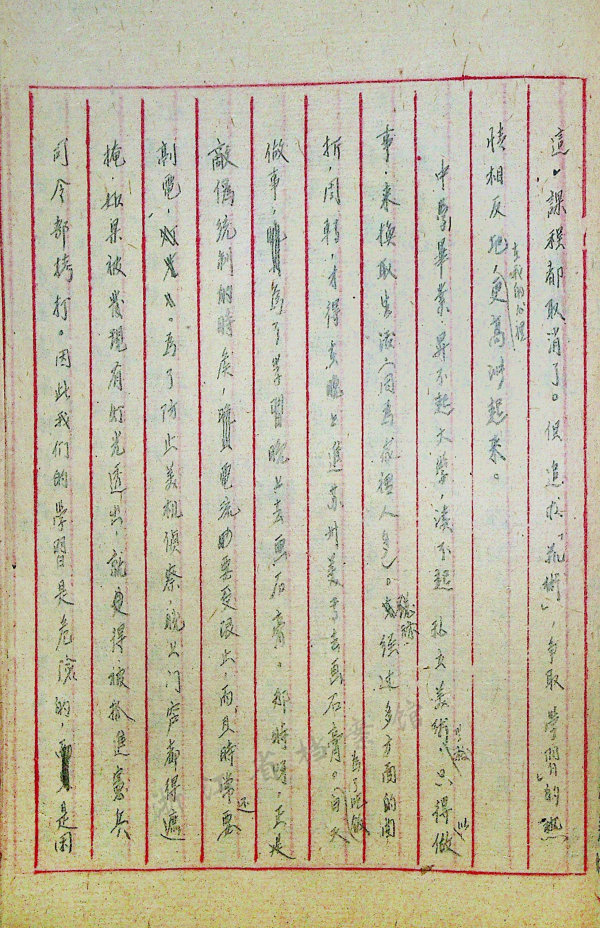 這，課程都取消了。但追求「艺術」爭取「學習」的熱
情相反地，在我的心裡更高漲起来。
中學畢業，昇不起大學，读不起私立美術，只得做
事，来換取生活，因為成
經过多方面的周
折，周轉，才得晚上進苏州美专去画石膏。白天為了吃飯
做事，為了學習晚上去画石膏。那時呀，正是
敵偽統制的時候，電流要受限止，而且時常还要
割電，為了防止美机偵察晚上门窗都得遮
掩，如果被發現有灯光透出，就得被捉進憲兵
司令部拷打。因此我们的學習是危險的，是困